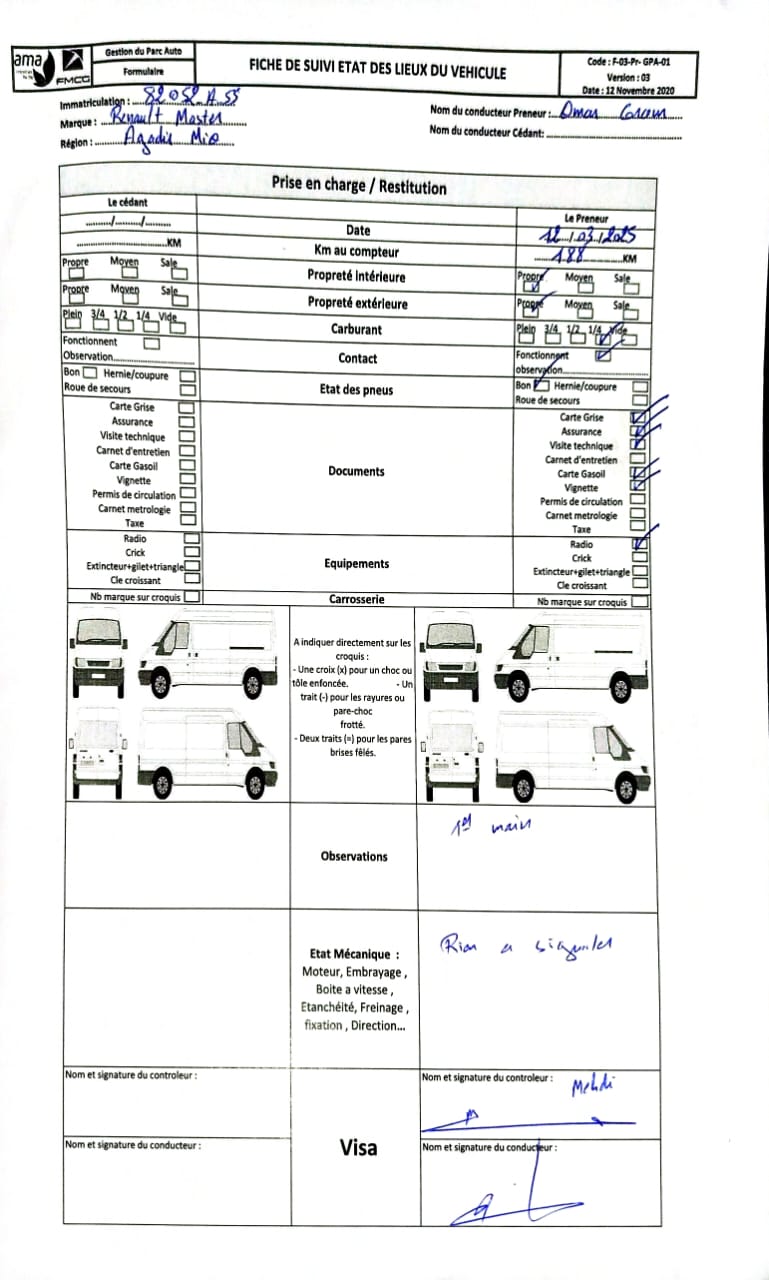 ama
FMCG
Gestion du Parc Auto
Formulaire
FICHE DE SUIVI ETAT DES LIEUX DU VEHICULE
Code : F-03-Pr- GPA-01
Version : 03
Date : 12 Novembre 2020
Immatriculation : 82052 A 55
Marque : Renault Master
Région : Agadir
Nom du conducteur Preneur : Omar
Nom du conducteur Cédant:
Prise en charge / Restitution
Le cédant
Le Preneur
......../......../........ Date 12/03/2025
KM Km au compteur 188 KM
Propre Moyen Sale Propreté intérieure Propre Moyen Sale
Propre Moyen Sale Propreté extérieure Propre Moyen Sale
Plein 3/4 1/2 1/4 Vide Carburant Plein 3/4 1/2 1/4 Vide
Fonctionnent Contact Fonctionnent
Observation observation
Bon Hernie/coupure Etat des pneus Bon Hernie/coupure
Roue de secours Roue de secours
Documents
Carte Grise Carte Grise
Assurance Assurance
Visite technique Visite technique
Carnet d'entretien Carnet d'entretien
Carte Gasoil Carte Gasoil
Vignette Vignette
Permis de circulation Permis de circulation
Carnet metrologie Carnet metrologie
Taxe Taxe
Equipements
Radio Radio
Crick Crick
Extincteur+gilet+triangle Extincteur+gilet+triangle
Cle croissant Cle croissant
Nb marque sur croquis Carrosserie Nb marque sur croquis
A indiquer directement sur les
croquis :
- Une croix (x) pour un choc ou
tôle enfoncée. - Un
trait (-) pour les rayures ou
pare-choc
frotté.
- Deux traits (=) pour les pares
brises fêlés.
Observations
1er main
Etat Mécanique :
Moteur, Embrayage ,
Boite a vitesse ,
Etanchéité, Freinage ,
fixation , Direction...
Rien a signaler
Nom et signature du controleur :
Nom et signature du controleur : Mehdi
Visa
Nom et signature du conducteur :
Nom et signature du conducteur :